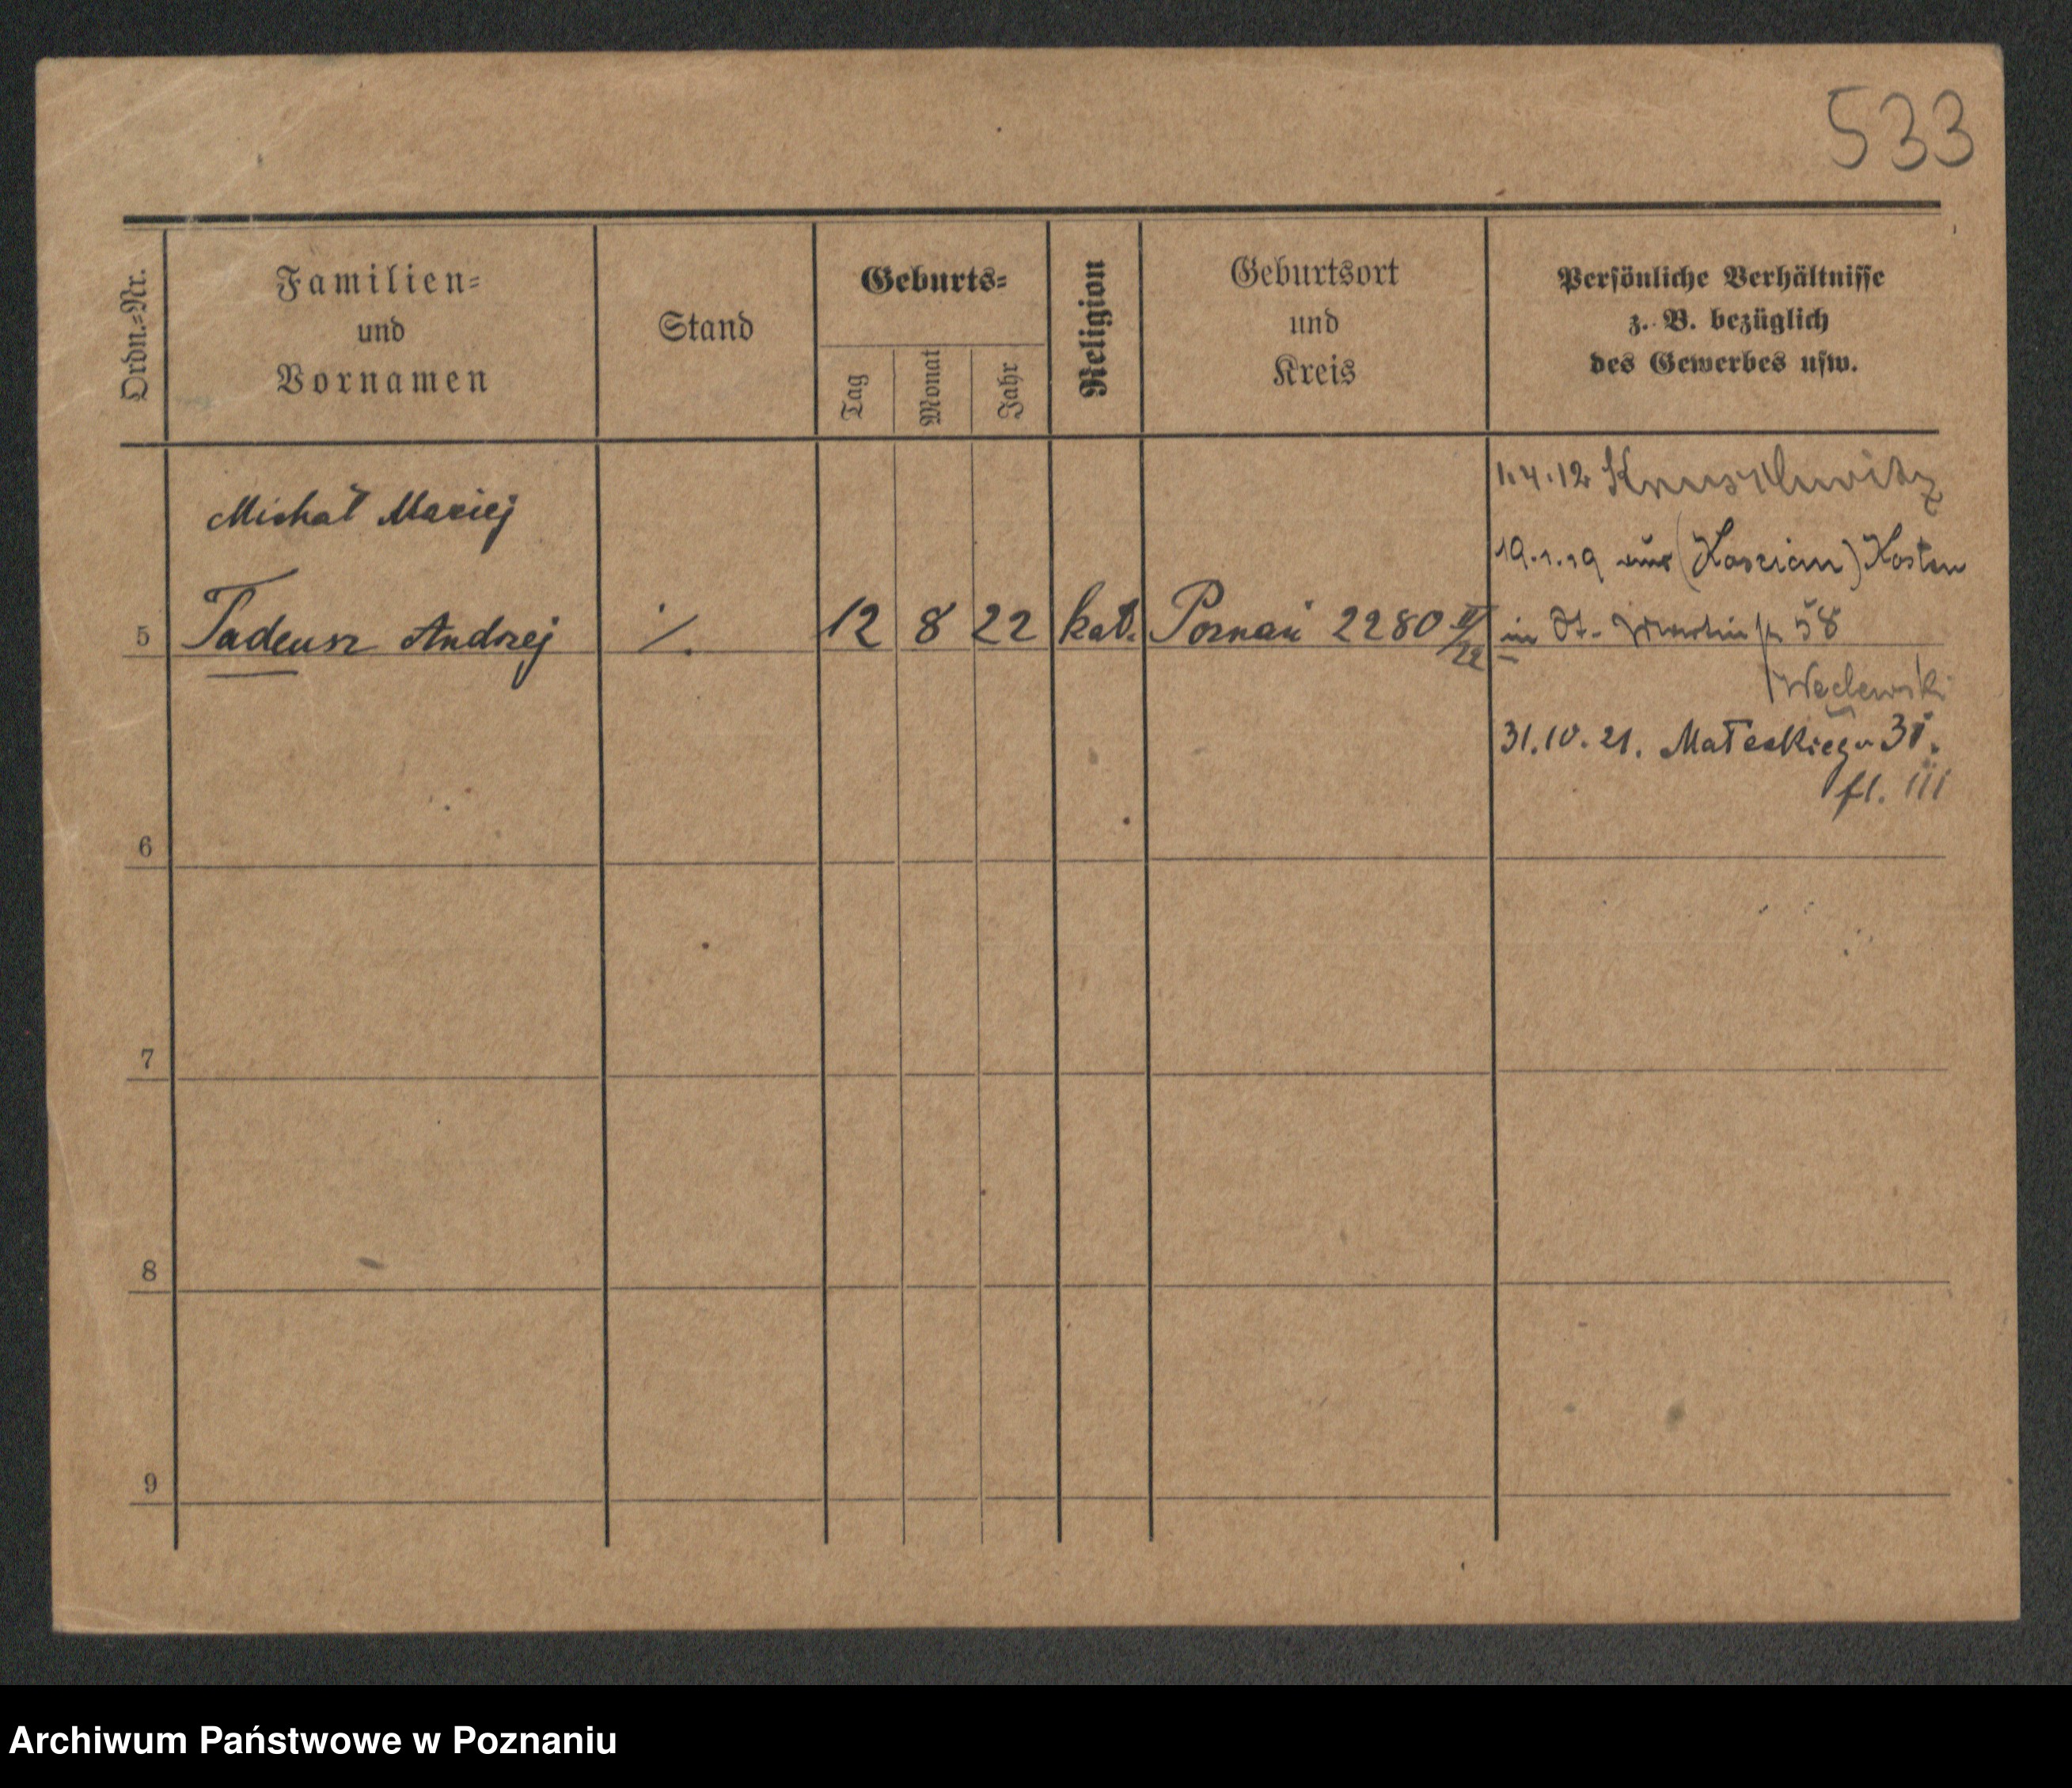 533
Ordn.=Nr.
Familien=
und
Vornamen
Stand
Geburts=
Tag
Monat
Jahr
Religion
Geburtsort
und
Kreis
Persönliche Verhältnisse
z. B. bezüglich
des Gewerbes usw.
Michał Maciej
5 Tadeusz Andrzej ./. 12 8 22 kat. Poznań 2280 II/22
1.4.12
19.1.19 aus (Kościan) Kosten
in St. Martin 58
Węclewski
31.10.21. Małeckiego 31.
fl. III
6
7
8
9
Archiwum Państwowe w Poznaniu